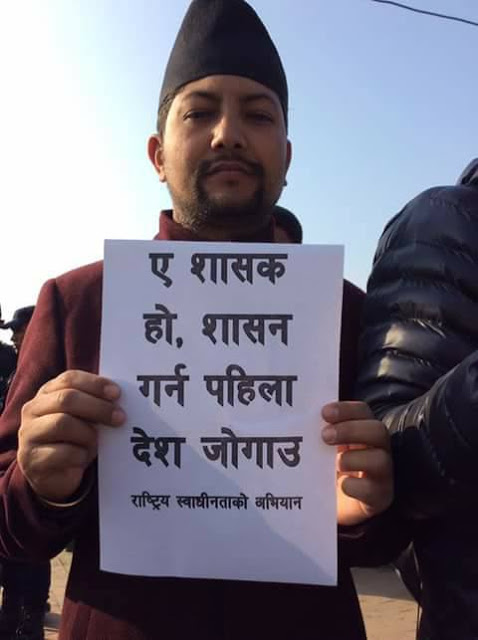 ए शासक
हो, शासन
गर्न पहिला
देश जोगाउ
राष्ट्रिय स्वाधीनताको अभियान